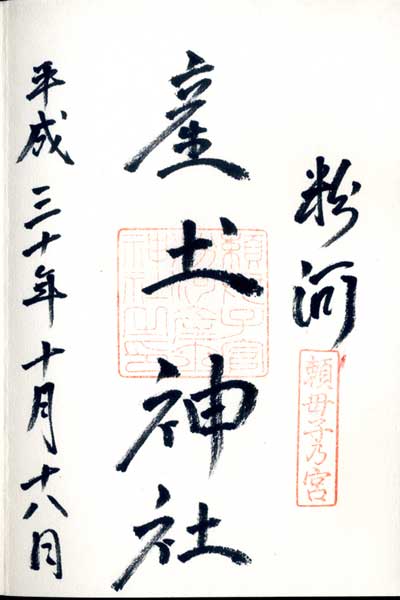 粉河
頼母子乃宮
産圡神社
平成三十年十月十八日